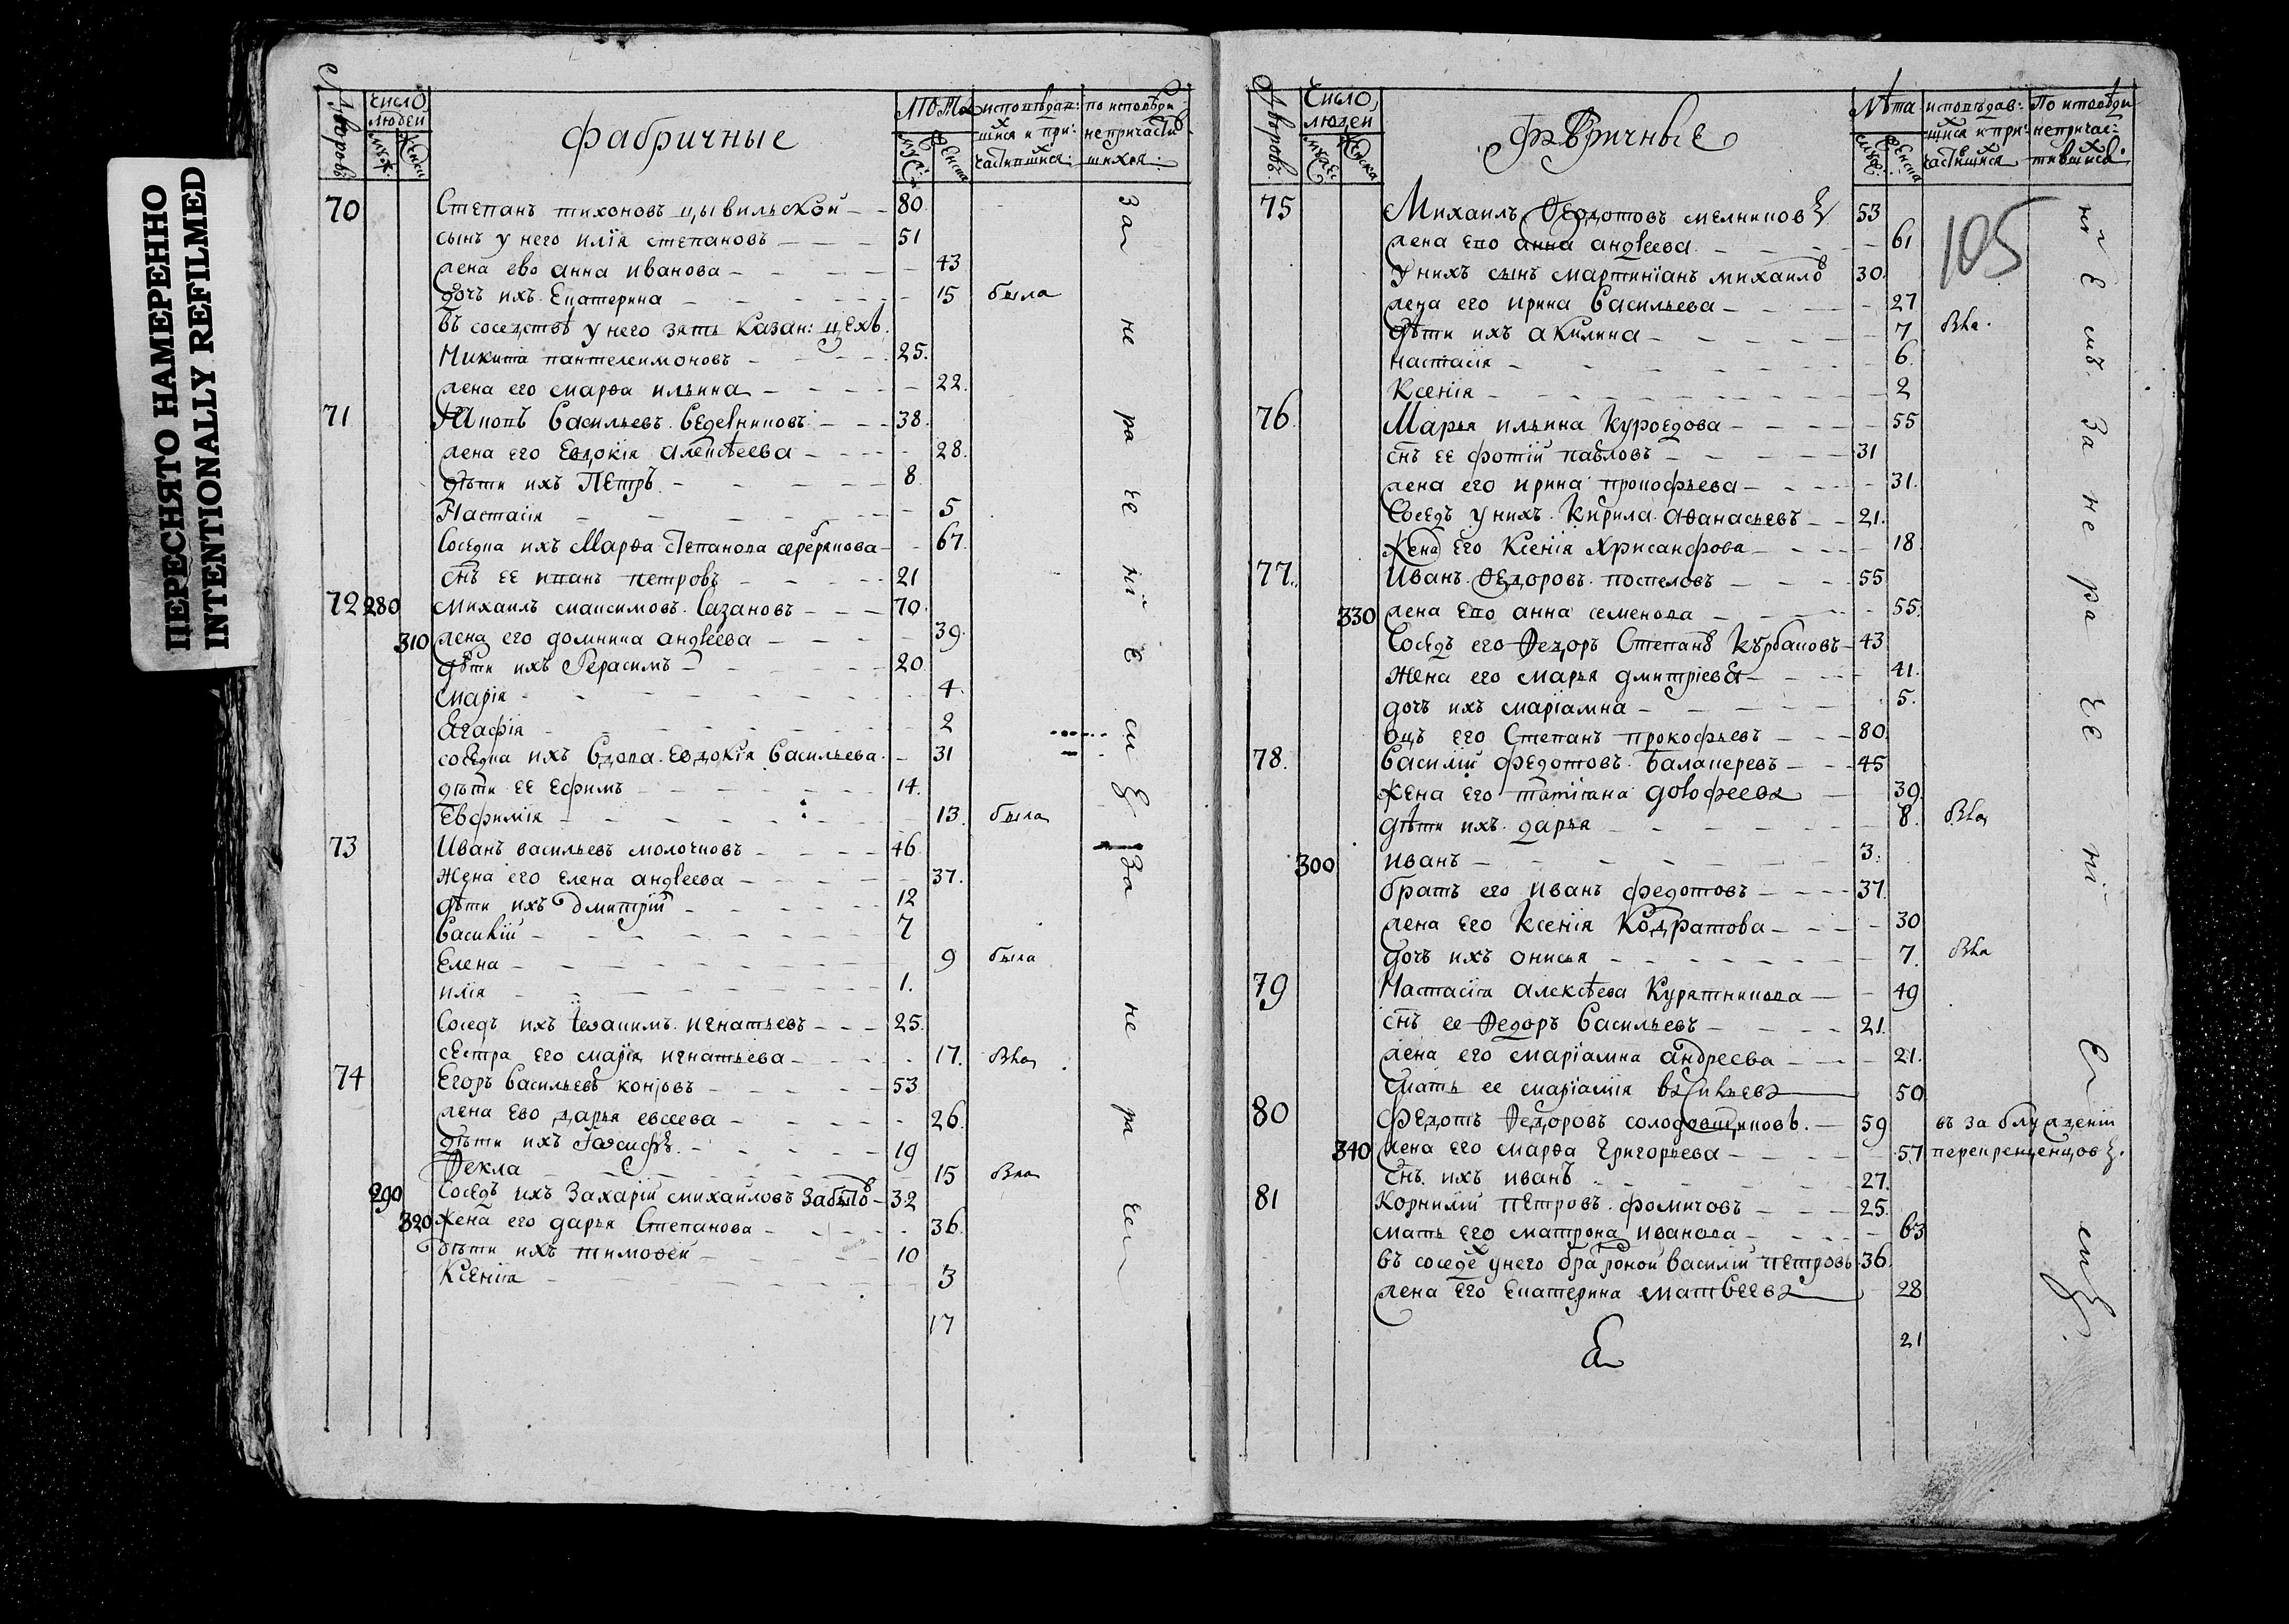 ПЕРЕСНЯТО НАМЕРЕННО
INTENTIONALLY REFILMED
Дворовъ
число людей
муж.
женск
фабричные
лѣта
исповѣдав:шихся и при:частившихся:
по исповѣди непричастившихся:
70 Степанъ тихоновъ цывильской 80
сынъ у него илїя степановъ 51
жена ево анна иванова 43
дочь ихъ Екатерина 15 была
въ соседствѣ у него зять казан: цехъ.
Никита пантелеимоновъ 25.
жена его марѳа ильина 22.
71 васильевъ седелниковъ 38.
жена его Евдокїя алексѣева 28.
дѣти ихъ Петръ 8
Настасїя 5
Соседка ихъ Марѳа степанова серебрякова 67
снъ ее иванъ петровъ 21
72 280 михаилъ максимовъ казановъ 70.
310 жена его домника андреева 39.
дѣти ихъ Герасимъ 20
марїя 4
Агафїя 2
соседка ихъ вдова Евдокїя васильева 31
дѣти ее ефимъ 14.
Евфимїя 13. была
73 Иванъ васильевъ молочковъ 46
жена его елена андреева 37.
дѣти ихъ дмитрїй 12
василїй 7
елена 9 была
илїя 1.
соседъ ихъ іоакимъ игнатьевъ 25.
сестра его марїя игнатьева 17. была
74 Егоръ васильевъ коновъ 53
жена ево дарья евсеева 26.
дѣти ихъ Іосифъ 19
Ѳекла 15 была
290 соседъ ихъ захарїй михаиловъ забыло 32
320 жена его дарья степанова 36.
дѣти ихъ тимоѳей 10
Ксенїя 3
17
за не ра че нї е мъ
за не ра че
Дворовъ
число людей
женска
фабричные
лѣта
исповѣдав:шихся и при:частившихся
По исповѣди непричас:тившихся.
105
75 Михаилъ Ѳедотовъ мелниковъ 53
жена ево анна андреева 61
у нихъ сынъ мартинїанъ михаиловъ 30.
жена его ирина васильева 27
дѣти ихъ акилина 7 была.
настасїя 6.
Ксенїя 2
76 Марья ильина куроедова 55
снъ ее фотїй павловъ 31
жена его ирина прокофьева 31.
Соседъ у нихъ кирила аѳанасьевъ 21.
жена его ксенїя хрисанфова 18.
77. Иванъ Ѳедоровъ поспеловъ 55
330 жена ево анна семенова 55.
Соседъ его Ѳедоръ степановъ курбаковъ 43
жена его марья дмитрїева 41.
дочь ихъ марїамна 5.
оцъ его степанъ прокофьевъ 80.
78. василїй федотовъ балакеревъ 45
жена его татїана дороѳеева 39.
дѣти ихъ дарья 8. была
300 иванъ 3.
братъ его иванъ федотовъ 37
жена его ксенїя кодратова 30
дочь ихъ онисья 7. была
79 Настасїя алексѣева курятникова 49
снъ ее Ѳедоръ васильевъ 21.
жена его марїамна андреева 21.
мать ее васильева 50
80 Федотъ Ѳедоровъ солодовщиковъ. 59 въ заблужденїи
340 жена его марѳа григорьева 57 перекрещенцовъ.
снъ ихъ иванъ 27.
81 Корнилїй петровъ фомичовъ 25.
мать его матрона иванова 63
въ соседе у него братъ родной василїй петровъ 36
жена его екатерина матвеева 28
21
е мъ за не ра че нї е мъ.